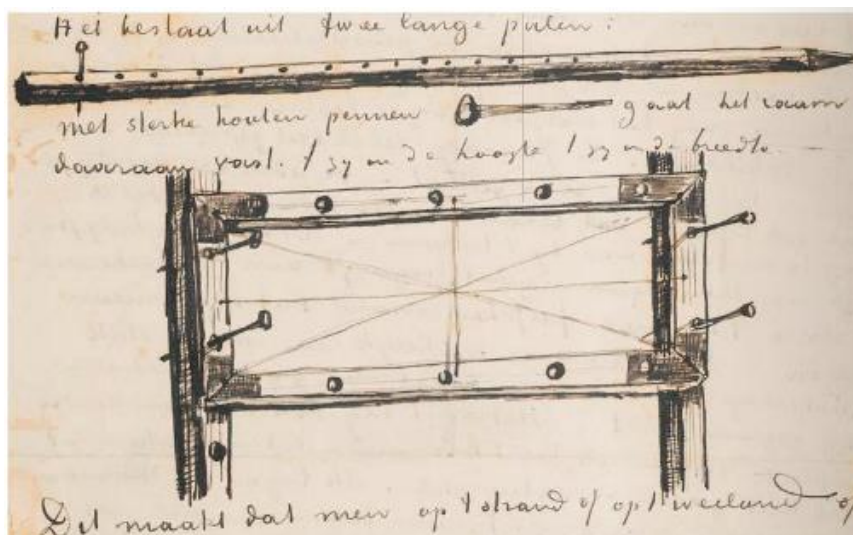 Het bestaat uit twee lange palen:
met sterke houten pennen gaat het raam
daaraan vast. 't zy in de hoogte 't zy in de breedte.
Dit maakt dat men op 't strand of op 't weiland of